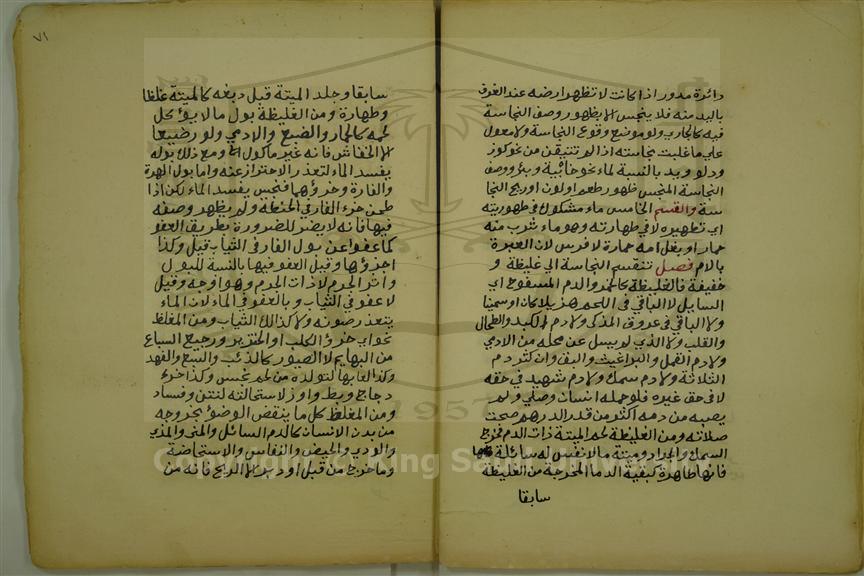 دائرة مدور اذا كانت لا تظهر ارضه عند الغرف
باليد منه فلا ينجس الا بظهور وصف النجاسة
فيه كالجاري ولو موضع وقوع النجاسة ولا معول
علي ما غلبت نجاسته اذا لو تتيقن من نحو كوز
ودلو ويد بالنسبة لماء نحو خابية وبئر ووصف
النجاسة المنجس ظهور طعم او لون او ريح النجا
سة والقسم الخامس ماء مشكوك في طهوريته
اي تطهيره لا في طهارته وهو ماء شرب منه
حمار او بغل امه حمارة لا فرس لان العبرة
بالام فصل تنقسم النجاسة الي غليظة و
خفيفة فالغليظة كالخمر والدم المسفوح اي
السايل لا الباقي في اللحم هزيلا كان او سمينا
ولا الباقي في عروق المذكي ولا دم الكبد والطحال
والقلب ولا الذي لم يسل عن محله من الادمي
ولا دم القمل والبراغيث والبق وان كثر دم
الثلاثة ولا دم سمك ولا دم شهيد في حقه
لا في حق غيره فلو حمله انسان وصلي ولم
يصبه من دمه اكثر من قدر الدرهم صحت
صلاته ومن الغليظة لحم الميتة ذات الدم فخرج
السمك والجراد وميتة ما لا نفس له سائلة
فانها طاهرة كبقية الدما المخرجة من الغليظة
سابقا
٧١
سابقا وجلد الميتة قبل دبغه كالميتة غلظا
وطهارة ومن الغليظة بول ما لا يؤكل
لحمه كالحمار والضبع والادمي ولو رضيعا
الا الخفاش فانه غير ماكول ومع ذلك بوله
يفسد الماء لتعذر الاحتراز عنه واما بول الهرة
والفارة وخرؤهما فنجس يفسد الماء لكن اذا
طحن خرء الفار في الحنطة ولم يظهر وصفه
فيها فانه لا يضر للضرورة بطريق العفو
كما عفوا عن بول الفار في الثياب قيل وكذا
خرؤها وقيل العفو فيها بالنسبة للبول
واثر الجرم لا ذات الجرم وهو اوجه وقيل
لا عفو في الثياب وبالعفو في الماء لان الماء
يتعذر صونه ولا كذلك الثياب ومن المغلظ
نحو اي خرؤ الكلب او الخنزير ورجيع السباع
من البهايم لا الطيور كالذئب والسبع والفهد
وكذا لعابها لتولده من لحم نجس وكذا خرء
دجاج وبط واوز لاستحالته لنتن وفساد
ومن المغلظ كل ما ينقض الوضؤ بخروجه
من بدن الانسان كالدم السائل والمني والمذي
والودي والحيض والنفاس والاستحاضة
وما خرج من قبل او دبر الا الريح فانه من
Copyright © King Saud University
1957